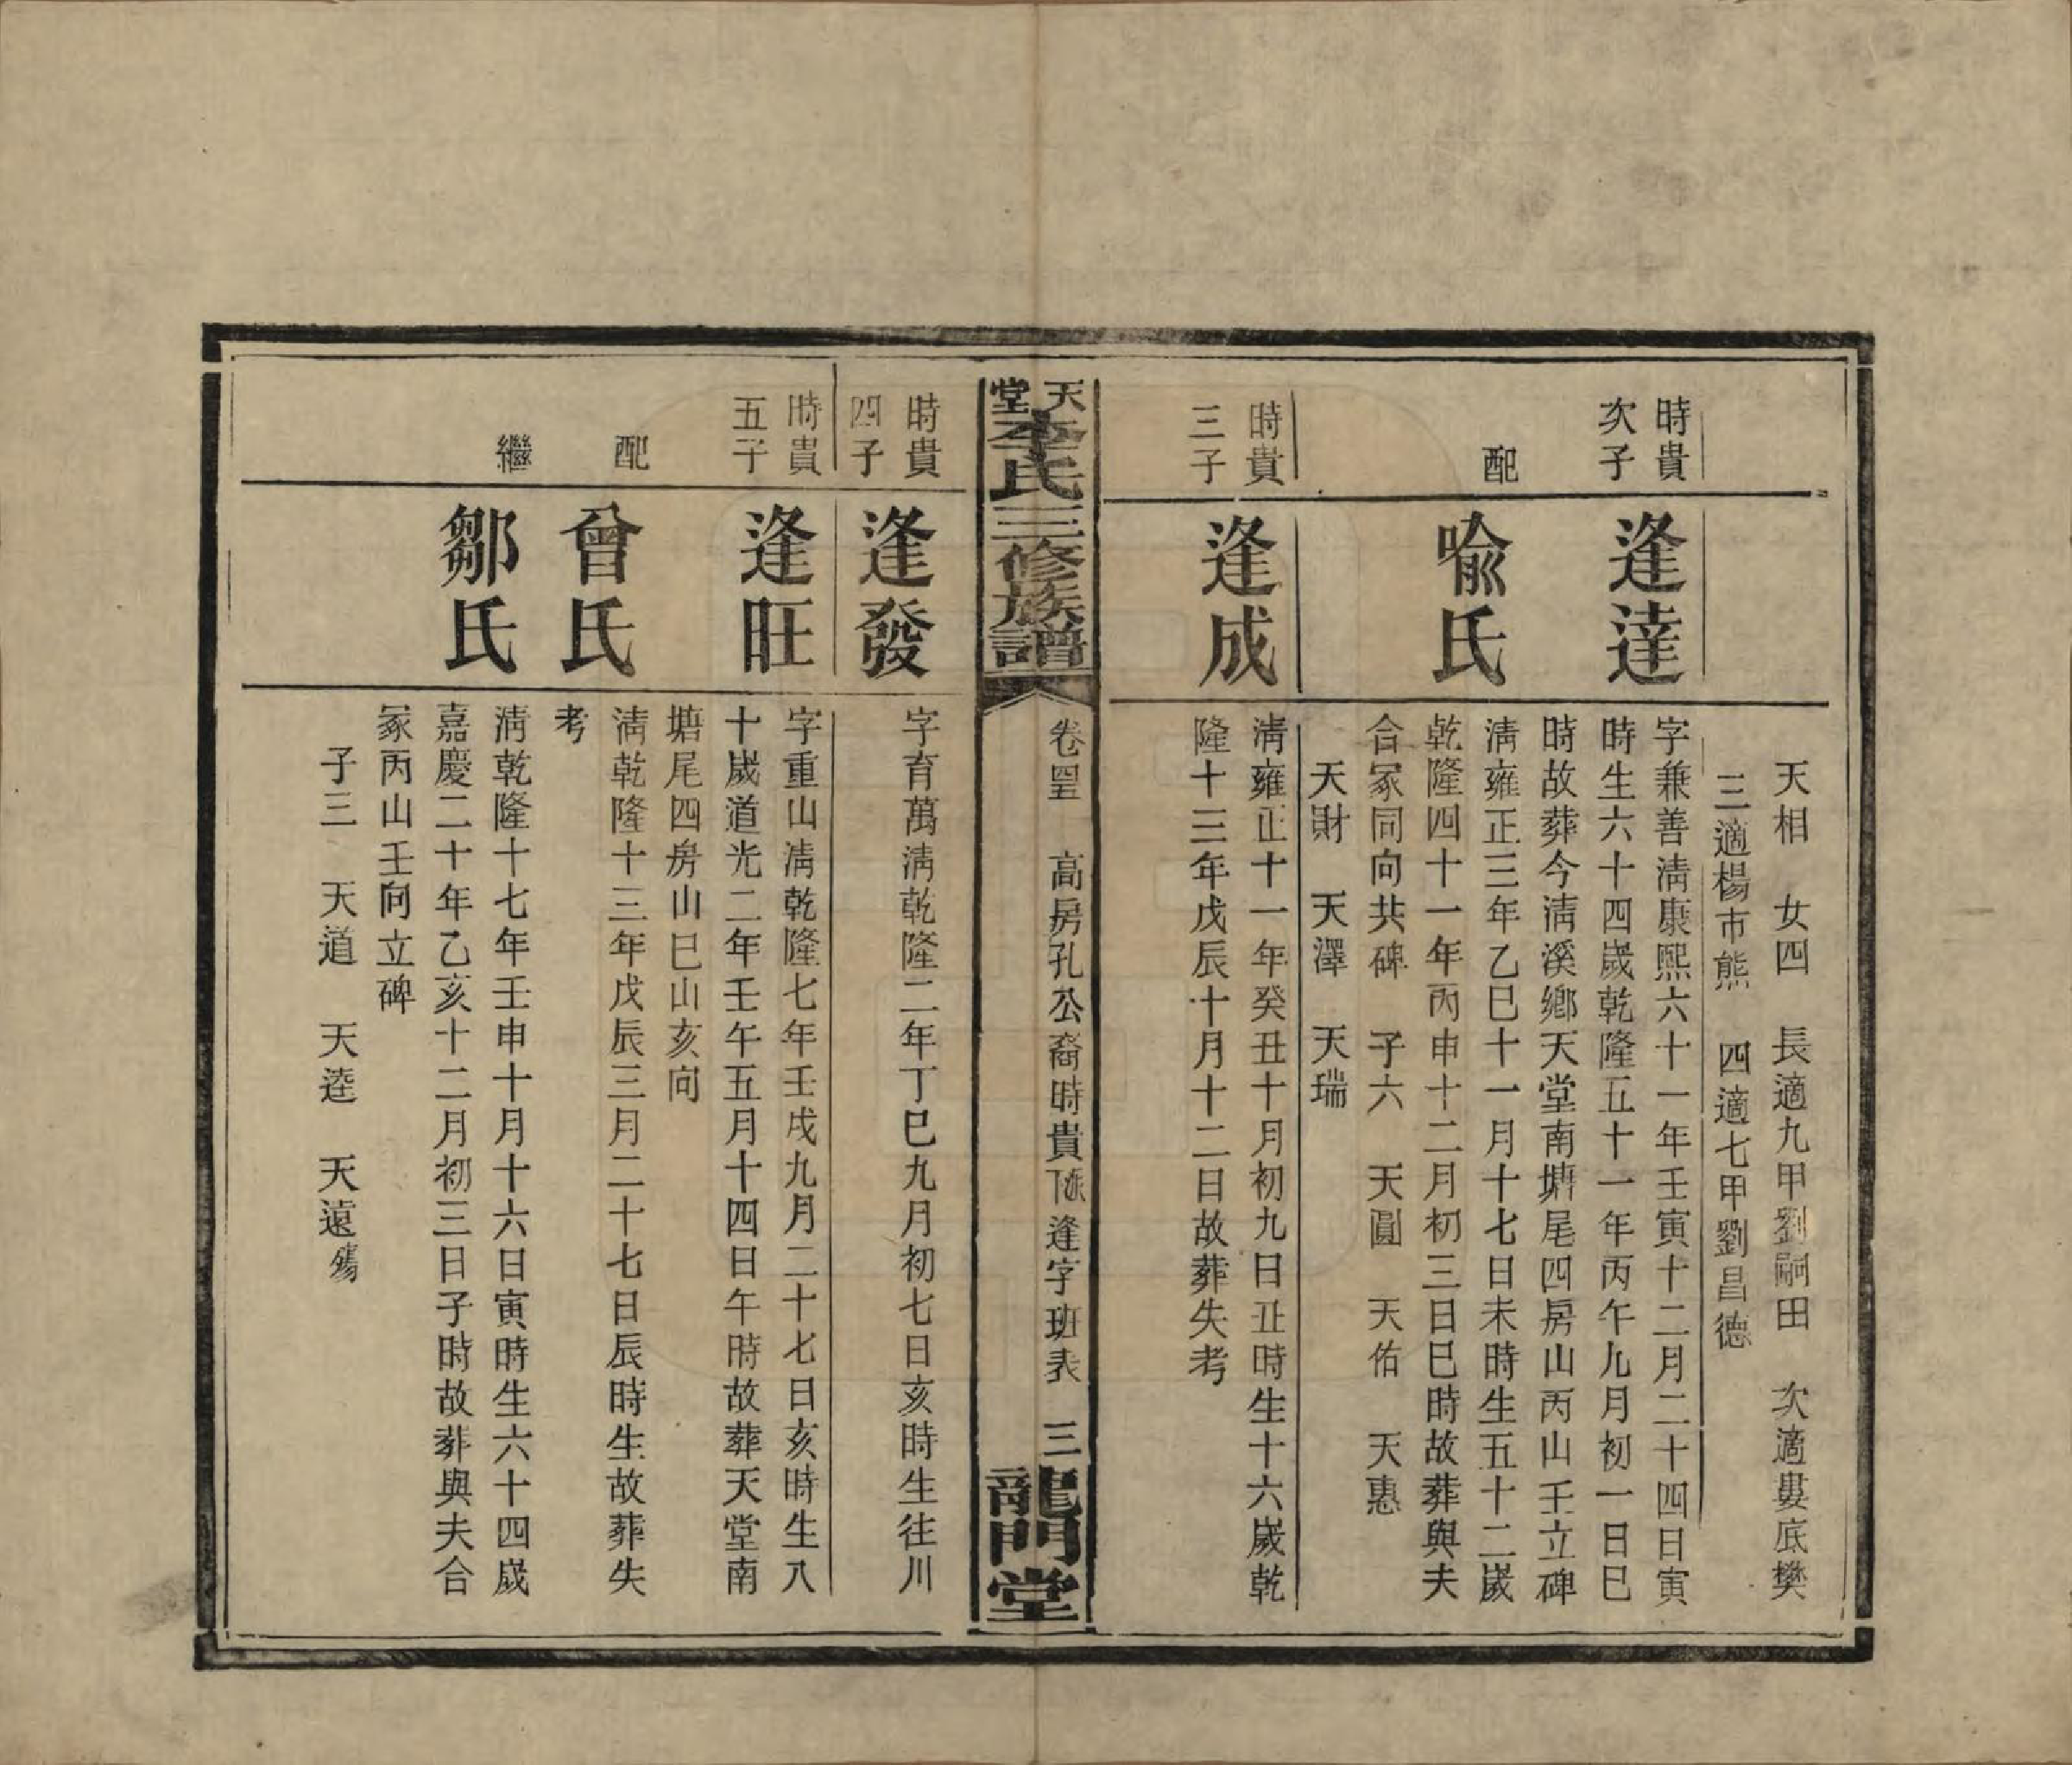 天相　女四　長適九甲劉嗣田　次適婁底樊
三適楊市熊　四適七甲劉昌德
時貴
次子
逢達
字兼善淸康熙六十一年壬寅十二月二十四日寅
時生六十四歲乾隆五十一年丙午九月初一日巳
時故葬今淸溪鄉天堂南塘尾四房山丙山壬立碑
配
喻氏
淸雍正三年乙巳十一月十七日未時生五十二歲
乾隆四十一年丙申十二月初三日巳時故葬與夫
合冢同向共碑　子六　天圓　天佑　天惠
天財　天澤　天瑞
時貴
三子
逢成
淸雍正十一年癸丑十月初九日丑時生十六歲乾
隆十三年戊辰十月十二日故葬失考
天堂李氏三修族譜
卷四十五　高房孔公裔時貴下派逢字班表　三
龍門堂
時貴
四子
逢發
字育萬淸乾隆二年丁巳九月初七日亥時生往川
時貴
五子
逢旺
字重山淸乾隆七年壬戌九月二十七日亥時生八
十歲道光二年壬午五月十四日午時故葬天堂南
塘尾四房山巳山亥向
配
曾氏
淸乾隆十三年戊辰三月二十七日辰時生故葬失
考
繼
鄒氏
淸乾隆十七年壬申十月十六日寅時生六十四歲
嘉慶二十年乙亥十二月初三日子時故葬與夫合
冢丙山壬向立碑
子三　天道　天逵　天遠殤